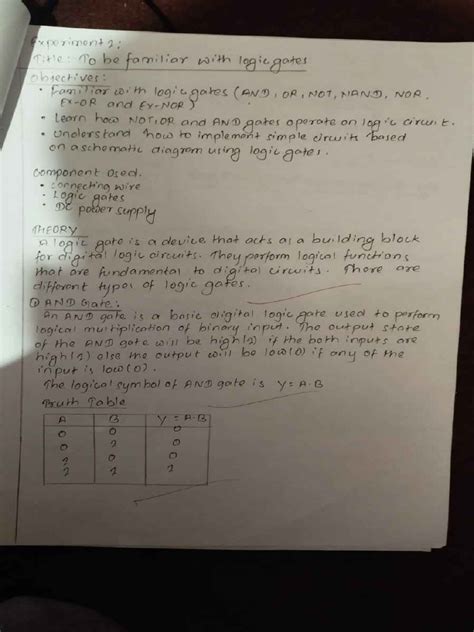 Experiment 1:
Title: To be familiar with logic gates
Objectives:
• Familiar with logic gates (AND, OR, NOT, NAND, NOR,
Ex-OR and Ex-NOR)
• Learn how NOT, OR and AND gates operate on logic circuit.
• Understand how to implement simple circuits based
on a schematic diagram using logic gates.
Component Used.
• Connecting wire
• Logic gates
• DC power supply
THEORY
A logic gate is a device that acts as a building block
for digital logic circuits. They perform logical functions
that are fundamental to digital circuits. There are
different types of logic gates.
① AND Gate:
An AND gate is a basic digital logic gate used to perform
logical multiplication of binary input. The output state
of the AND gate will be high(1) if the both inputs are
high(1) else the output will be low(0) if any of the
input is low(0).
The logical symbol of AND gate is Y=A·B
Truth Table
A B Y=A·B
0 0 0
0 1 0
1 0 0
1 1 1